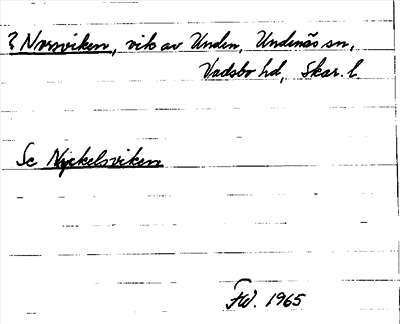 ? Norsviken, vik av Unden, Undenäs sn,
Vadsbo hd, Skar. l.
Se Nyckelsviken
FW. 1965